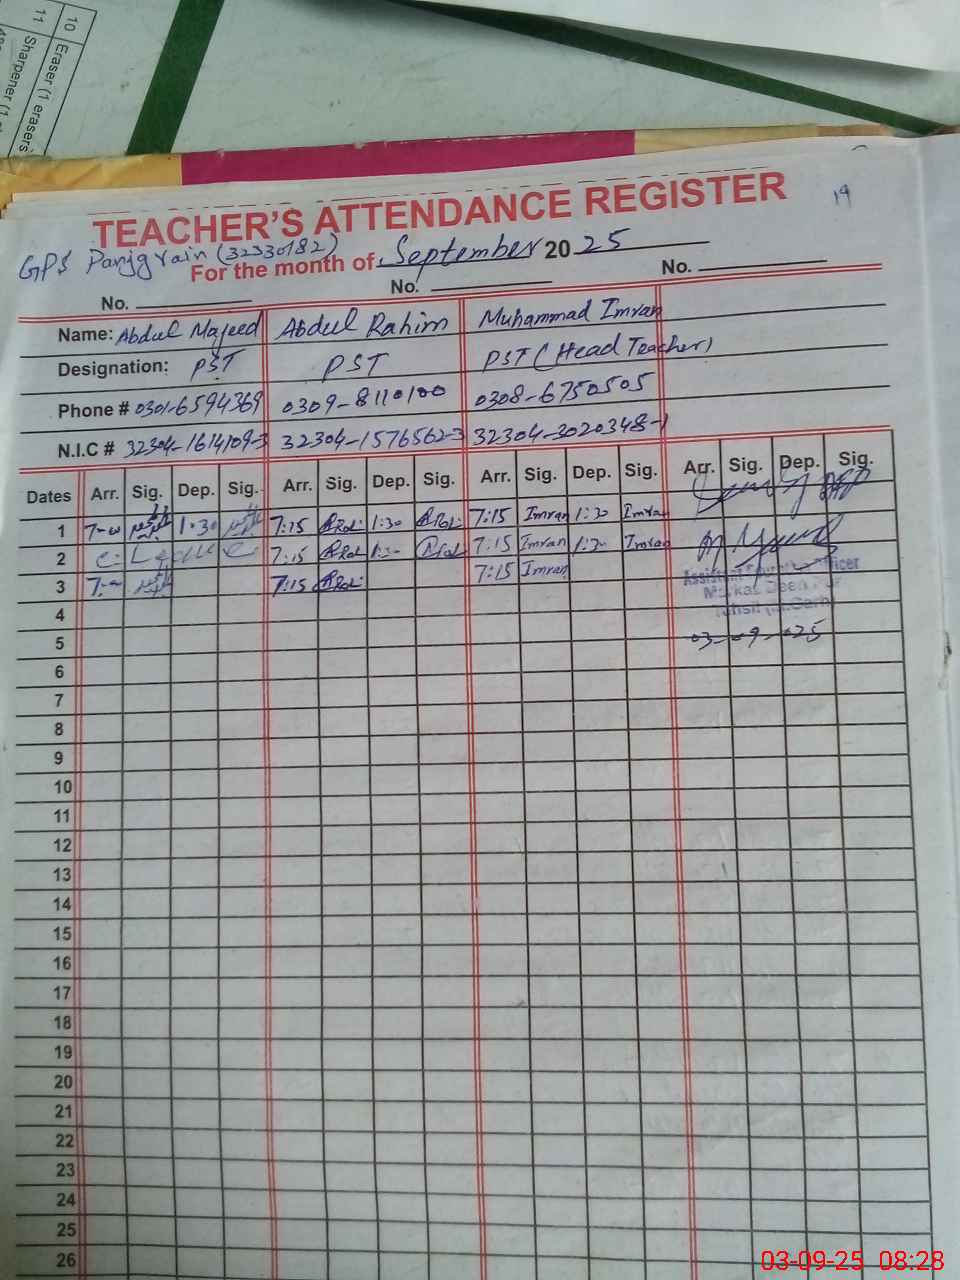 10 Eraser (1 erasers
11 Sharpener (1
19
TEACHER'S ATTENDANCE REGISTER
GPS Panjgrain (32330182)
For the month of September 2025
No. No. No.
Name: Abdul Majeed Abdul Rahim Muhammad Imran
Designation: PST PST PST (Head Teacher)
Phone # 0301-6594369 0309-8110100 0308-6750505
N.I.C # 32304-1614109-3 32304-1576562-3 32304-3020348-1
Dates Arr. Sig. Dep. Sig. Arr. Sig. Dep. Sig. Arr. Sig. Dep. Sig. Arr. Sig. Dep. Sig.
1 7-00 1:30 7:15 1:30 7:15 Imran 1:30 Imran
2 C. Leave 7:15 1:30 7:15 Imran 1:30 Imran
3 7-00 7:15 7:15 Imran
Assistant Education Officer
Markaz Deen Pur
4
03-09-025
5
6
7
8
9
10
11
12
13
14
15
16
17
18
19
20
21
22
23
24
25
26
03-09-25 08:28